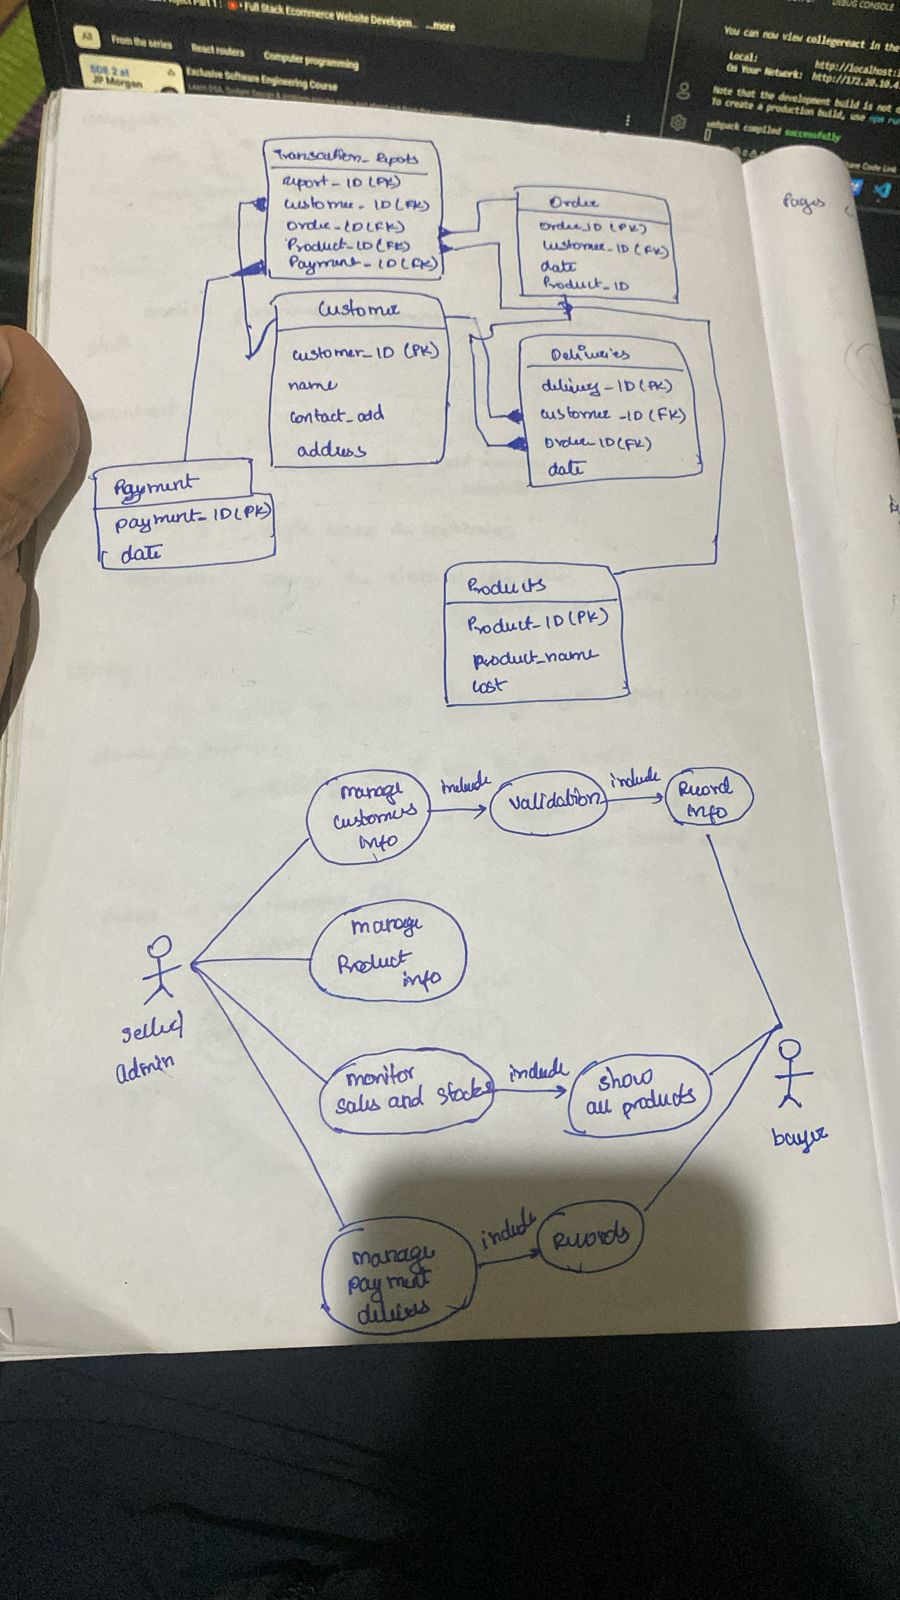 Full Stack Ecommerce Website Developm... ...more
All
From the series
React routers
Computer programming
SDE 2 at
JP Morgan
Exclusive Software Engineering Course
DEBUG CONSOLE
You can now view collegereact in the
Local: http://localhost:
On Your Network: http://172.20.10.4
Note that the development build is not o
To create a production build, use npm ru
webpack compiled successfully
Share Code Link
Pages
Transaction_Repots
report_ID (PK)
customer_ID (FK)
Order_ID (FK)
Product_ID (FK)
Payment_ID (FK)
Order
Order_ID (PK)
Customer_ID (FK)
date
Product_ID
Customer
customer_ID (PK)
name
contact_add
address
Deliveries
delivery_ID (PK)
customer_ID (FK)
order_ID (FK)
date
Payment
payment_ID (PK)
date
Products
Product_ID (PK)
product_name
cost
manage
customers
info
include
validation
include
Record
info
manage
Product
info
seller/
admin
monitor
sales and stocks
include
show
all products
buyer
manage
payment
include
Records